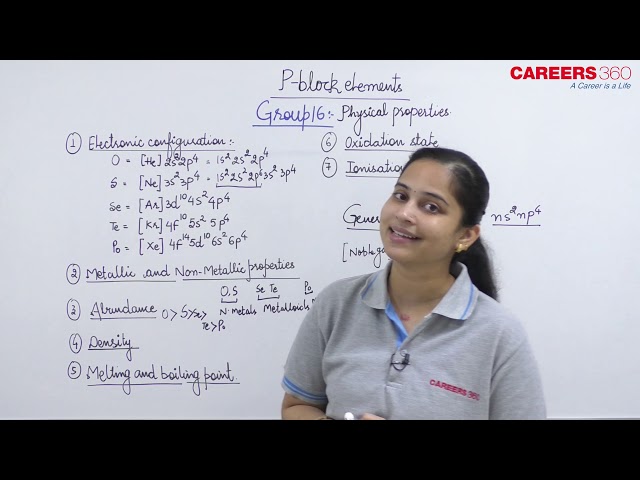 CAREERS360
A Career is a Life
P-block elements
Group 16:- Physical properties
① Electronic configuration:-
O = [He] 2s² 2p⁴ = 1s² 2s² 2p⁴
S = [Ne] 3s² 3p⁴ = 1s² 2s² 2p⁶ 3s² 3p⁴
Se = [Ar] 3d¹⁰ 4s² 4p⁴
Te = [Kr] 4f¹⁰ 5s² 5p⁴
Po = [Xe] 4f¹⁴ 5d¹⁰ 6s² 6p⁴
② Metallic and Non-Metallic properties
O,S Se Te Po
N-Metals Metalloids
③ Abundance O > S > Se >
Te > Po
④ Density
⑤ Melting and boiling point
⑥ Oxidation state
⑦ Ionisation
Gener ns² np⁴
[Noble ga
CAREERS360